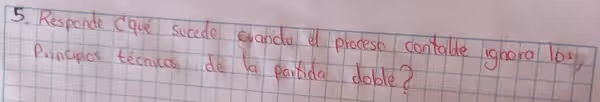 5. Responde ¿qué sucede cuando el proceso contable ignora los
Principios técnicos de la partida doble?